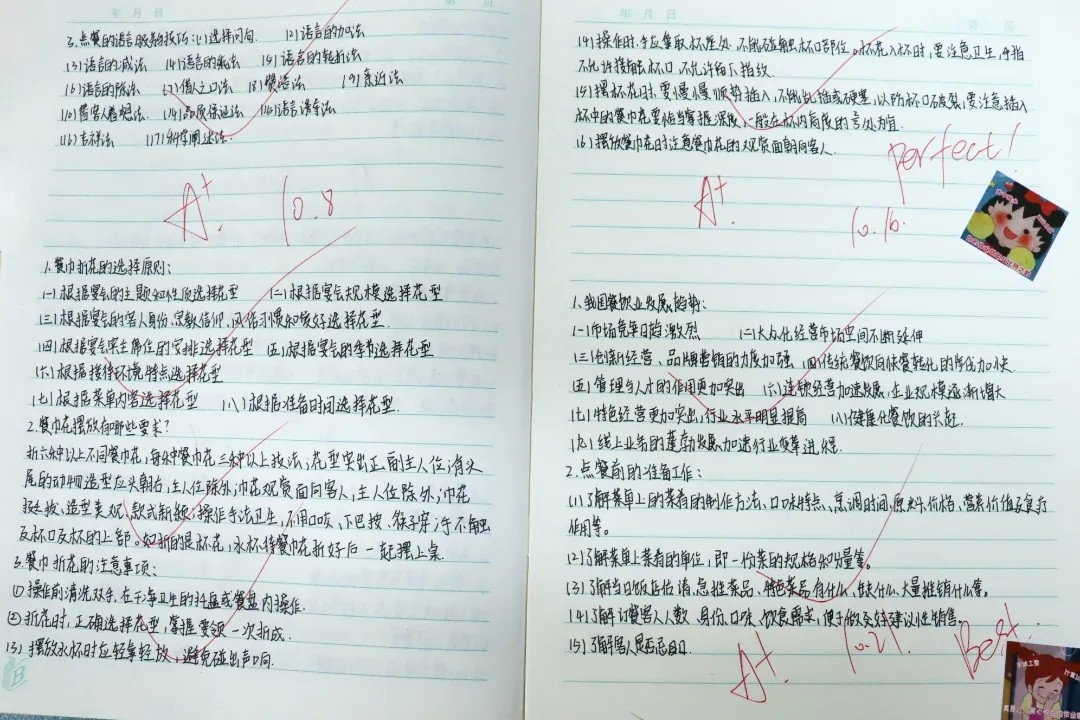 年 月 日
3.点餐的语言服务技巧:(1)选择问句 (2)语言的加法
(3)语言的减法 (4)语言的乘法 (5)语言的转折法
(6)语言的除法 (7)借人之口法 (8)赞语法 (9)亲近法
(14)品质保证法
(16)吉祥法 (17)科学阐述法.
A+ 10.8
1.餐巾折花的选择原则:
(一)根据宴会的主题和性质选择花型 (二)根据宴会规模选择花型
(三)根据宴会的客人身份、宗教信仰、风俗习惯和爱好选择花型.
(四)根据宴会宾主席位的安排选择花型 (五)根据宴会的季节选择花型
(六)根据接待环境特点选择花型
(七)根据菜单内容选择花型 (八)根据准备时间选择花型.
2.餐巾花摆放有哪些要求?
折六种以上不同餐巾花,每种餐巾花三种以上技法,花型突出正副主人位,有头
尾的动物造型应头朝右,主人位除外,巾花观赏面向客人,主人位除外,巾花
挺拔、造型美观、款式新颖;操作手法卫生,不用口咬、下巴按、筷子穿;手不触
及杯口及杯的上部。如折的是杯花,水杯待餐巾花折好后一起摆上桌.
3.餐巾折花的注意事项:
①操作前清洗双手,在干净卫生的托盘或餐盘内操作.
②折花时,正确选择花型,掌握要领一次折成.
(3)摆放水杯时应轻拿轻放,避免碰出声响.
年 月 日 第 页
(4)操作时,手应拿取杯座处,不能碰触杯口部位。杯花入杯时,要注意卫生,手指
不允许接触杯口,不允许留下指纹.
(5)摆杯花时,要慢慢顺势插入,不能乱插或硬塞,以防杯口破裂,要注意插入
杯中的餐巾花要恰当掌握深度,一般在杯内高度的 处为宜.
(6)摆放餐巾花时注意餐巾花的观赏面朝向客人.
Perfect!
A+ 10.16.
1.我国餐饮业发展趋势:
(一)市场竞争日趋激烈 (二)大众化经营市场空间不断延伸
(三)创新经营、品牌营销的力度加强 (四)传统餐饮向快餐转化的步伐加快.
(五)管理与人才的作用更加突出 (六)连锁经营加速发展,企业规模逐渐增大
(七)特色经营更加突出,行业水平明显提高 (八)健康化餐饮的兴起.
(九)线上业务的蓬勃发展加速行业变革进程.
2.点餐前的准备工作:
(1)了解菜单上的菜肴的制作方法、口味特点、烹调时间、原料、价格、营养价值及食疗
作用等。
(2)了解菜单上菜肴的单位,即一份菜的规格和分量等。
(3)了解当日饭店估清、急推菜品、特色菜品有什么、缺什么、大量推销什么等。
(4)了解订餐客人人数、身份、口味、饮食需求,便于做及好建议性销售.
(5)了解客人是否忌口.
A+ 10.21 Best.